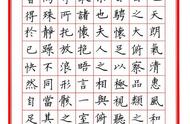 天朗氣清惠風和
之大俯察品類之
騁懷足以極視聽
也夫人之相與俯
諸懷抱悟言一室
所託放浪形骸之
殊靜躁不同當其
得於己快然自足